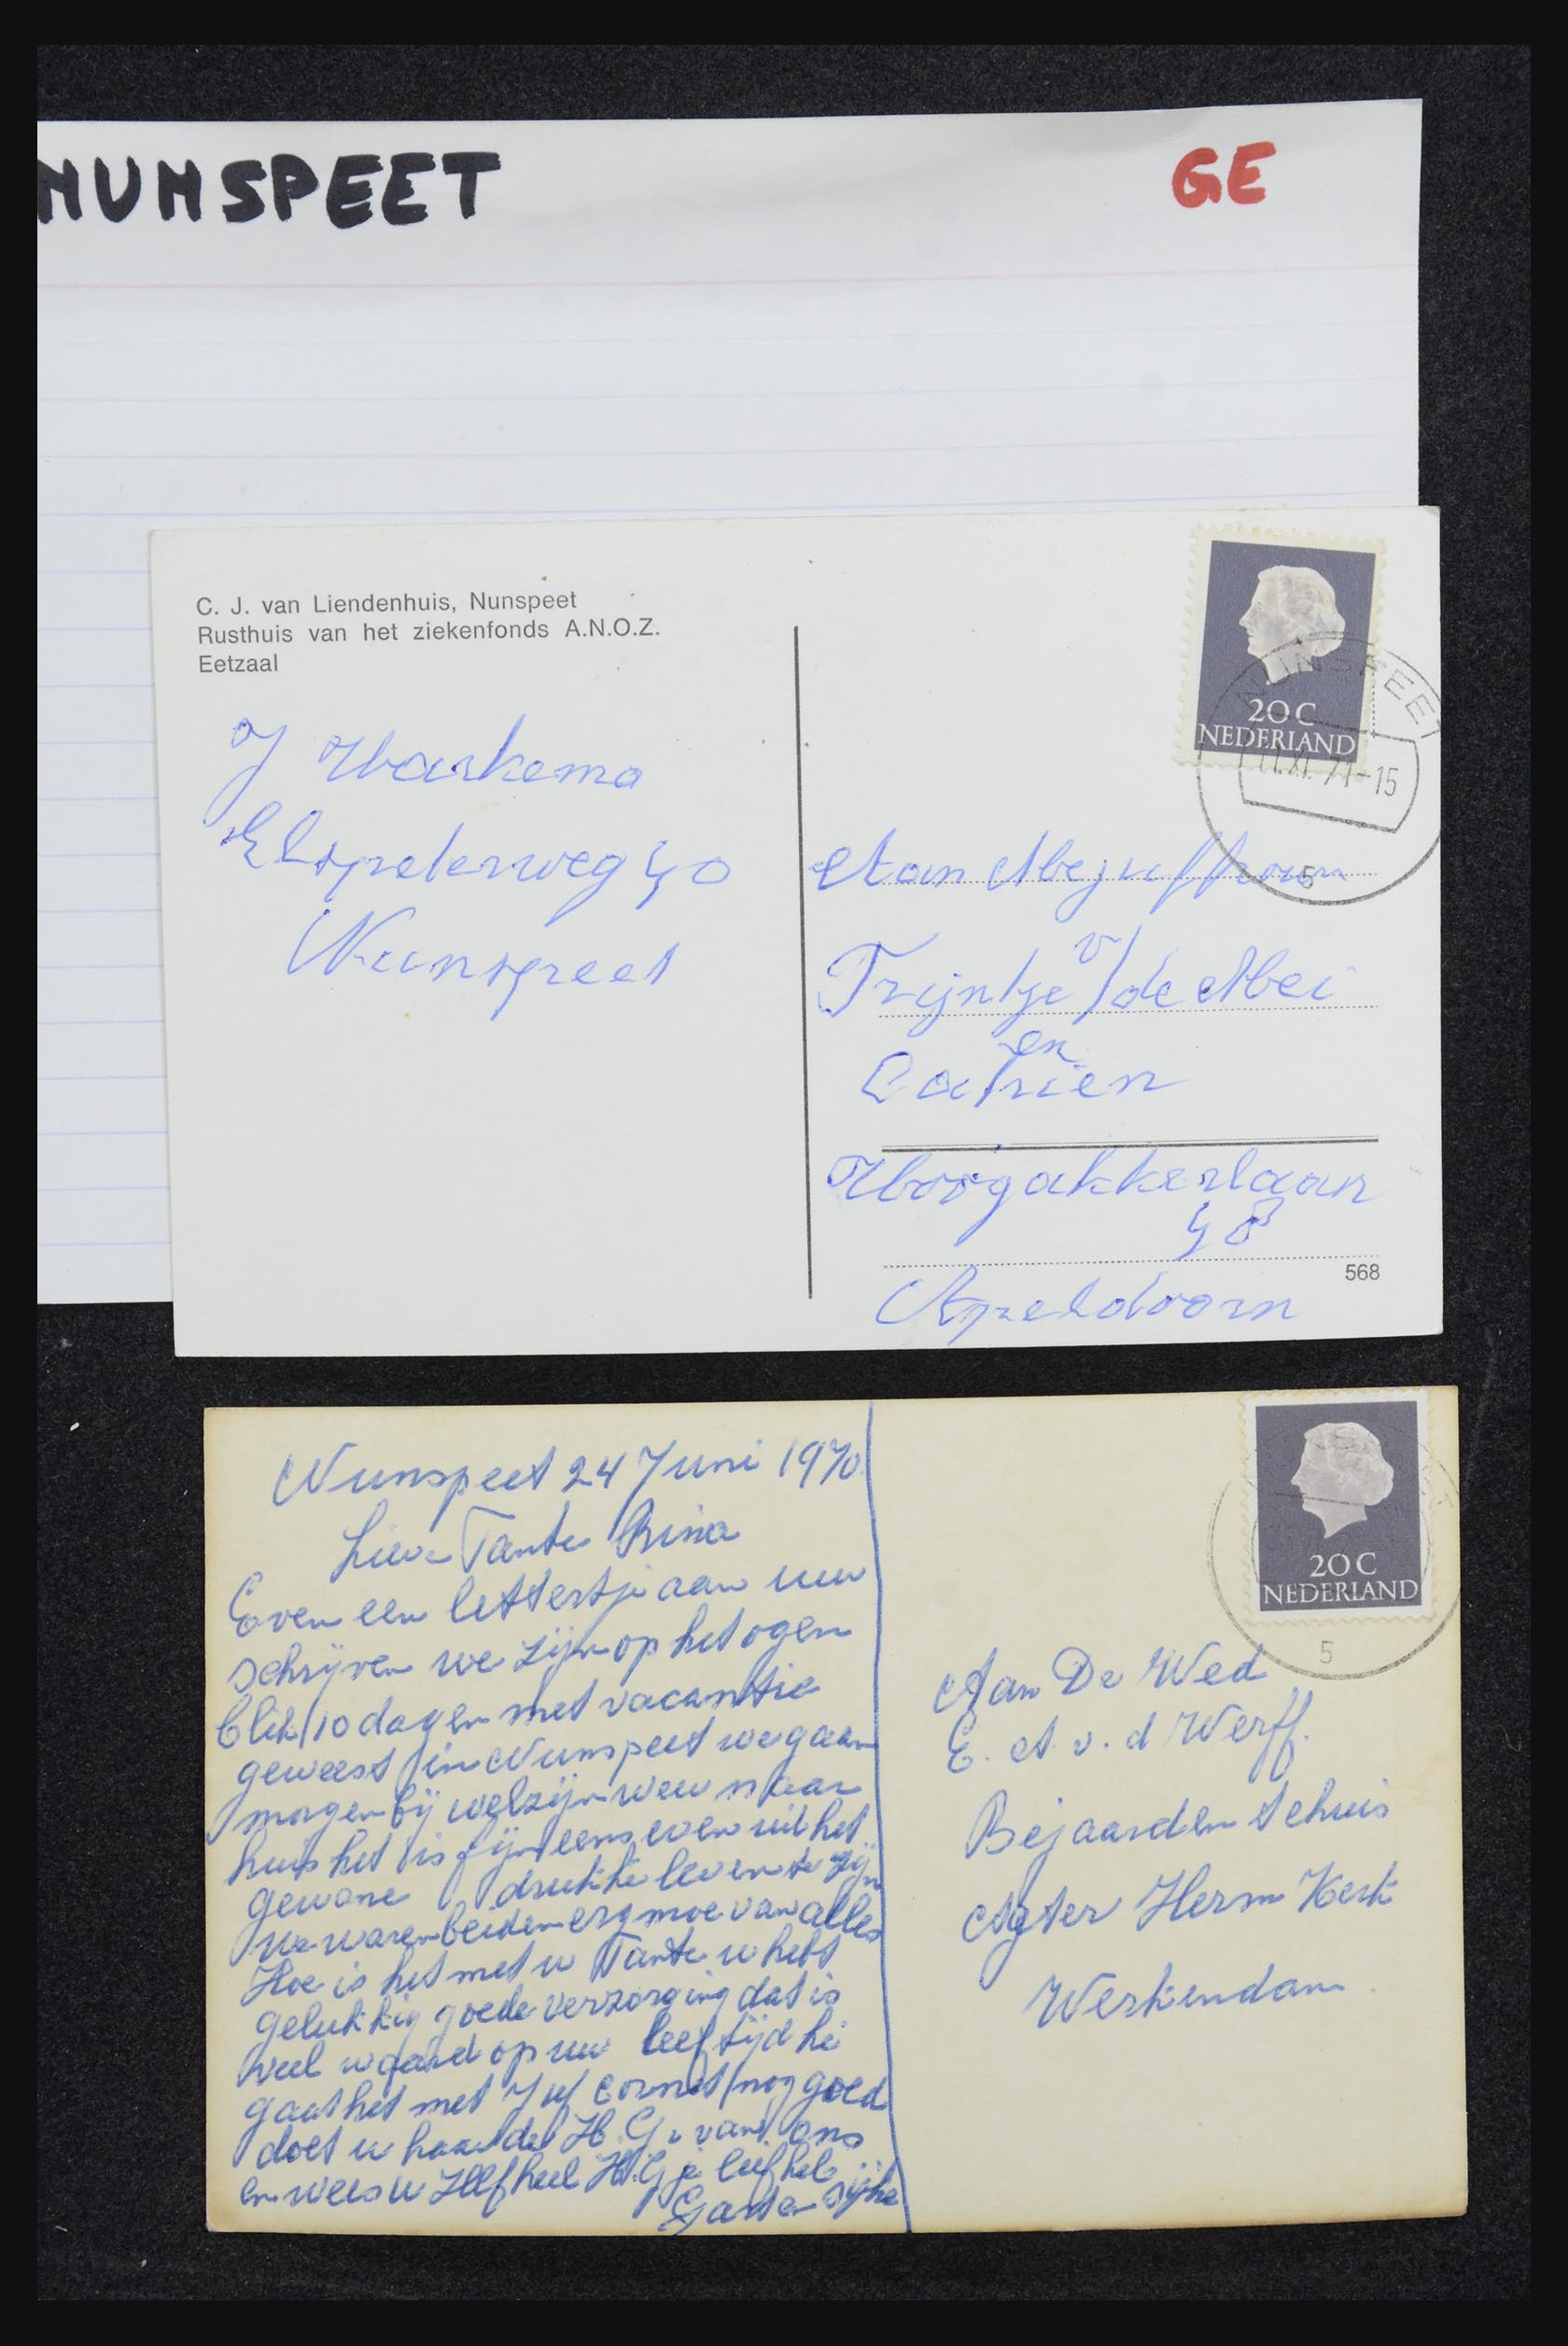 NUNSPEET
GE
C. J. van Liendenhuis, Nunspeet
Rusthuis van het ziekenfonds A.N.O.Z.
Eetzaal
20 C
NEDERLAND
NUNSPEET
11.XI.71-15
5
J Harkema
Elspeterweg 40
Nunspeet
Aan Mejuffrouw
Trijntje v/de Mei
en
Catrien
Hoogakkerlaan
48
568
Apeldoorn
20 C
NEDERLAND
5
Nunspeet 24 Juni 1970
Lieve Tante Rina
Even een lettertje aan uw
schrijven we zijn op het ogen
blik 10 dagen met vacantie
geweest in Nunspeet we gaan
morgen bij welzijn weer naar
huis het is fijn eens even uit het
gewone drukke leven te zijn
we waren beiden erg moe van alles
Hoe is het met u Tante u hebt
gelukkig goede verzorging dat is
veel waard op uw leeftijd hoe
gaat het met Juf Cornet nog goed
doet u haar de H.G. van ons
en wees u zelf heel H.G. je liefheb
Garden Sijke
Aan De Wed
E. A. v. d Werff.
Bejaarden tehuis
Agter Herm Kerk
Werkendam